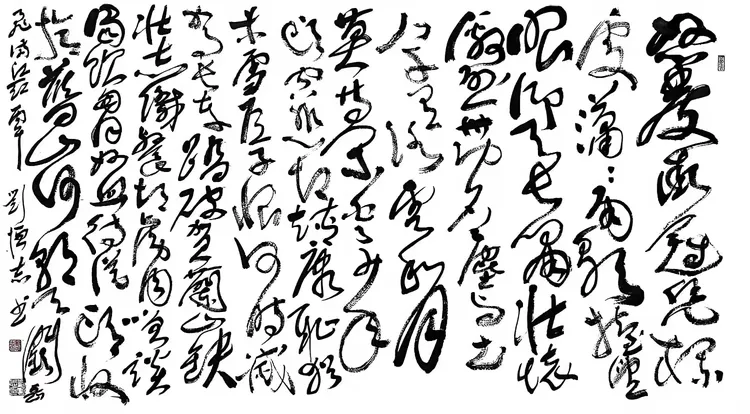 怒髮衝冠憑欄
處瀟々雨歇抬望
眼仰天長嘯壯懷
激烈卅功名塵與土
八千里路雲和月
莫等閑白了少年
頭空悲切靖康恥猶
未雪臣子恨何時滅
駕長車踏破賀蘭山缺
壯志飢餐胡虜肉笑談
渴飲匈奴血待從頭收
拾舊山河朝天闕岳
飛滿江紅劉恒志書